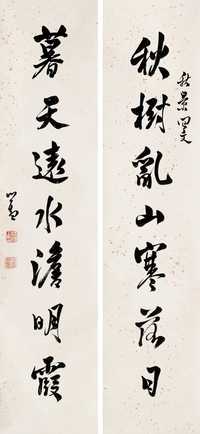 秋景回文
秋樹亂山寒落日
暮天遠水澹明霞
心畬